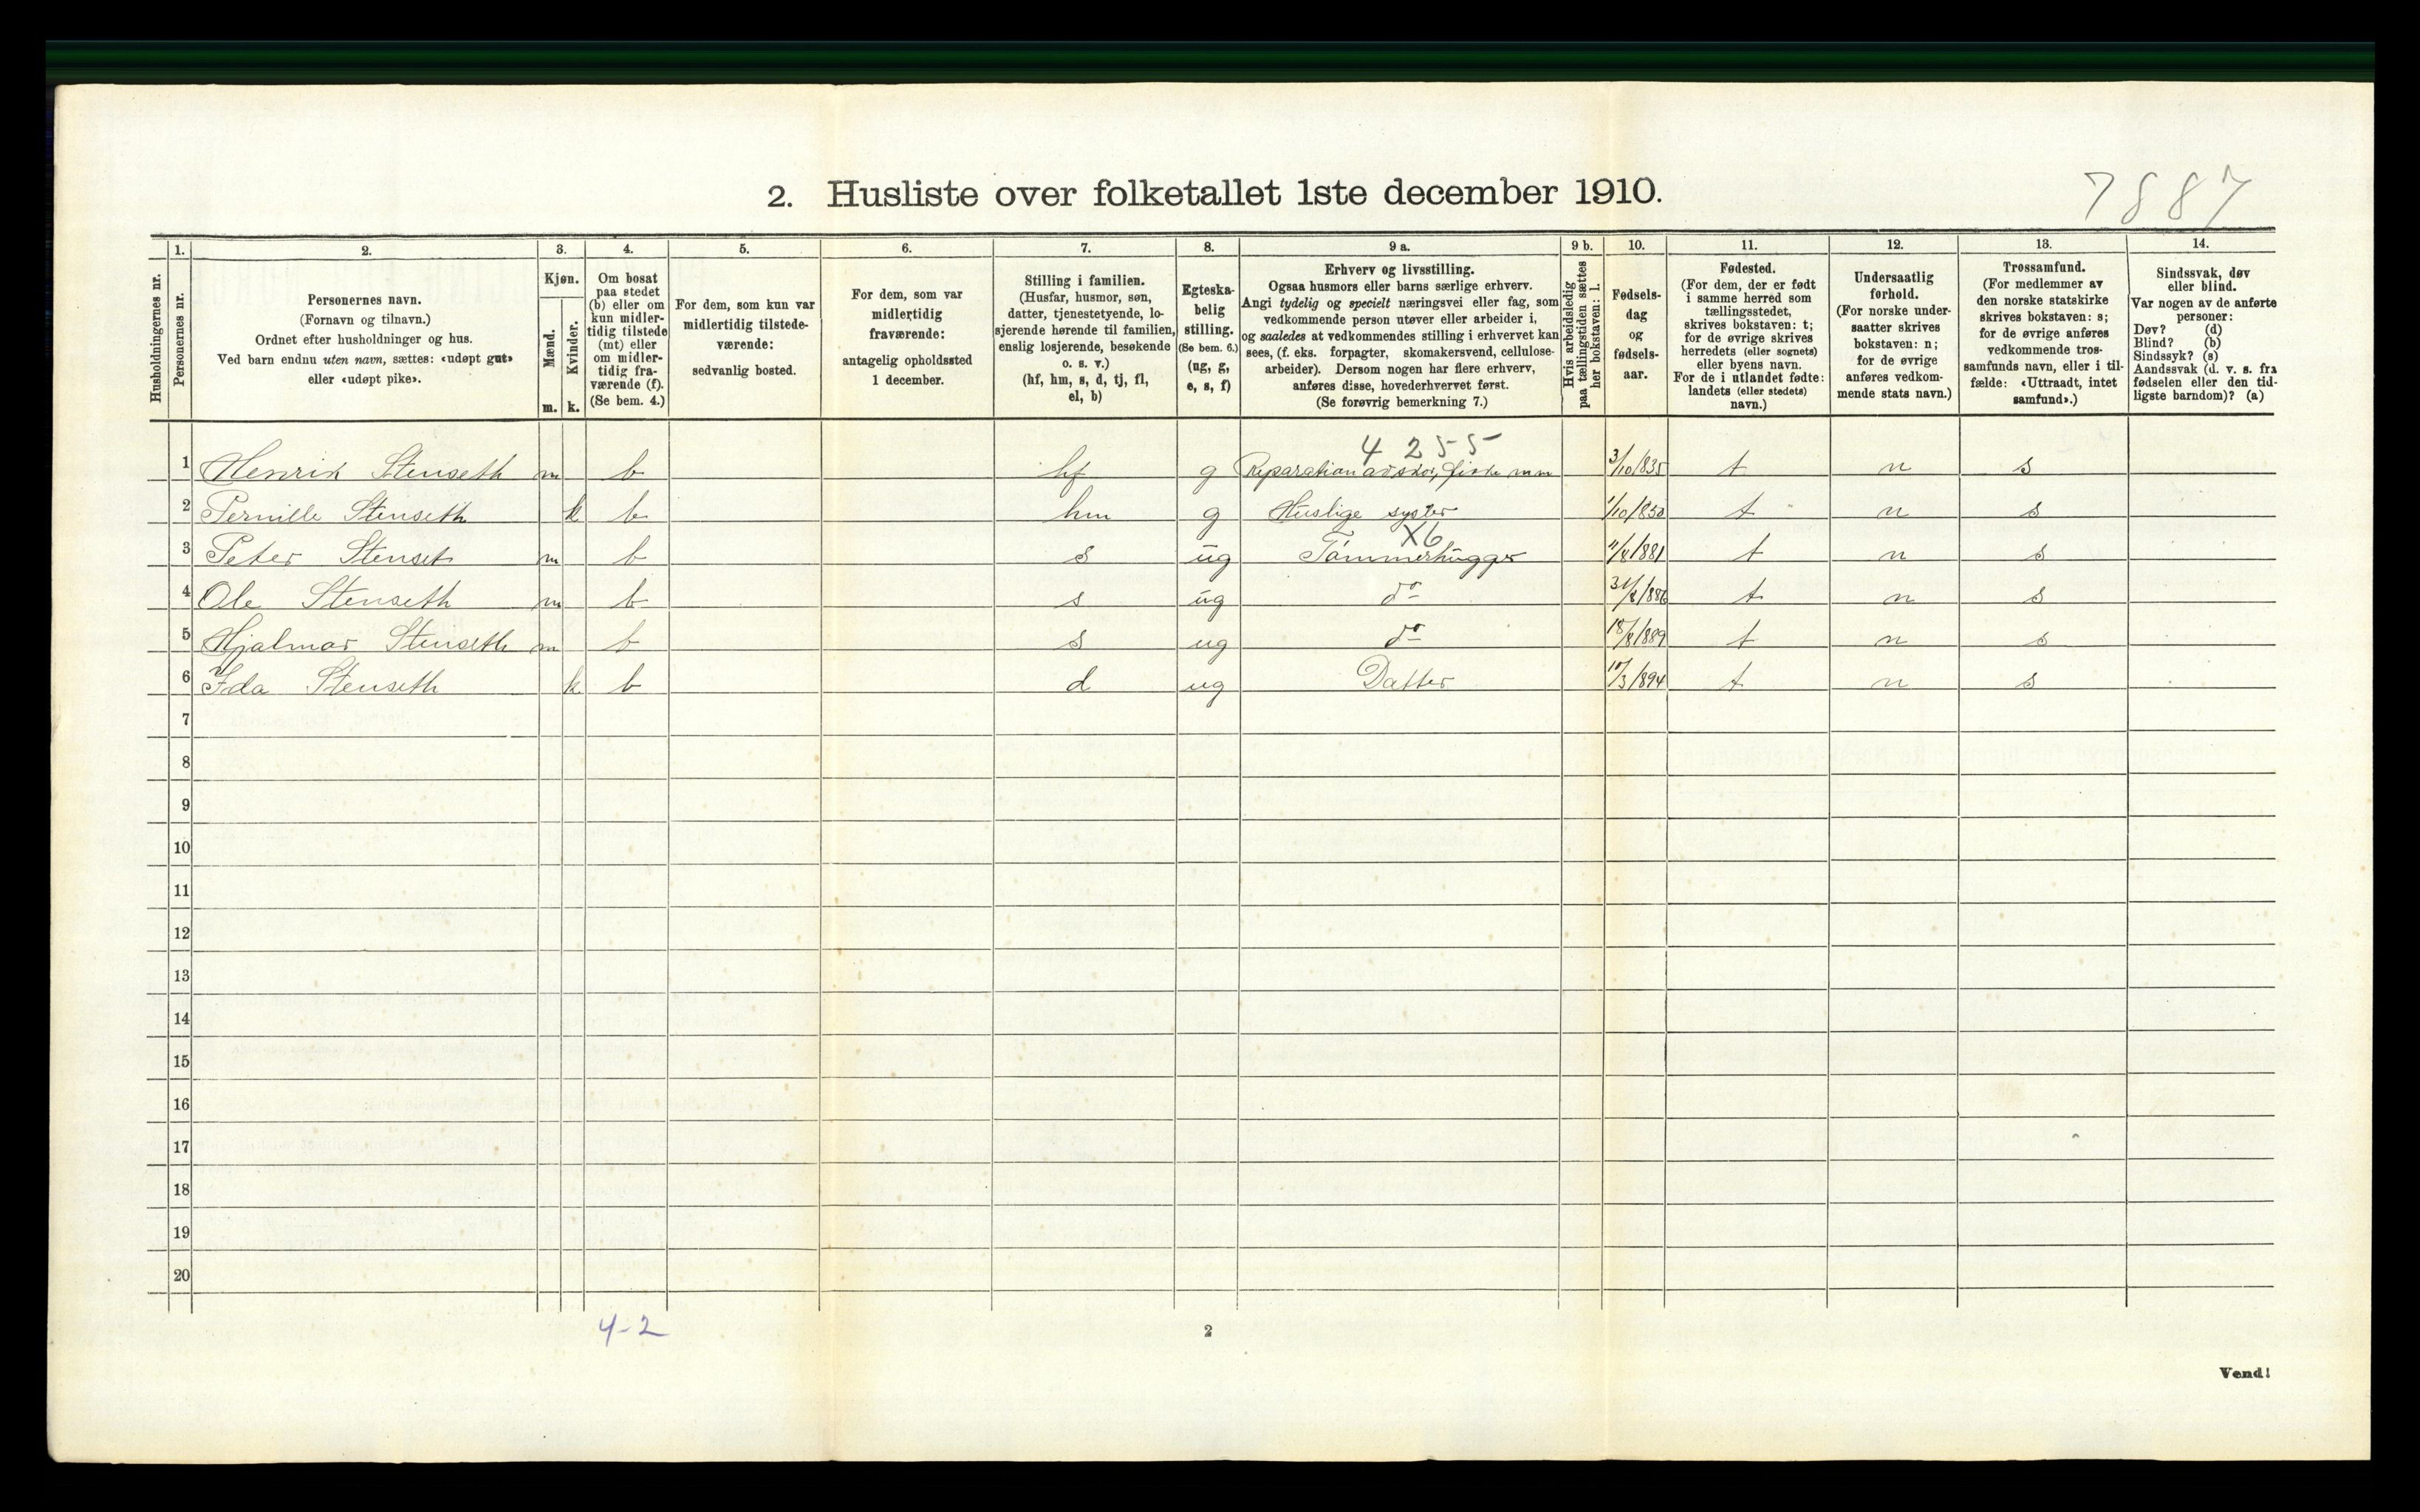 7887
2. Husliste over folketallet 1ste december 1910.
Husholdningernes nr.
1.
Personernes nr.
2.
Personernes navn.
(Fornavn og tilnavn.)
Ordnet efter husholdninger og hus.
Ved barn endnu uten navn, sættes: «udøpt gut»
eller «udøpt pike».
3.
Kjøn.
Mænd.
Kvinder.
m. k.
4.
Om bosat
paa stedet
(b) eller om
kun midler-
tidig tilstede
(mt) eller
om midler-
tidig fra-
værende (f).
(Se bem. 4.)
5.
For dem, som kun var
midlertidig tilstede-
værende:
sedvanlig bosted.
6.
For dem, som var
midlertidig
fraværende:
antagelig opholdssted
1 december.
7.
Stilling i familien.
(Husfar, husmor, søn,
datter, tjenestetyende, lo-
sjerende hørende til familien,
enslig losjerende, besøkende
o. s. v.)
(hf, hm, s, d, tj, fl,
el, b)
8.
Egteska-
belig
stilling.
(Se bem. 6.)
(ug, g,
e, s, f)
9 a.
Erhverv og livsstilling.
Ogsaa husmors eller barns særlige erhverv.
Angi tydelig og specielt næringsvei eller fag, som
vedkommende person utøver eller arbeider i,
og saaledes at vedkommendes stilling i erhvervet kan
sees, (f. eks. forpagter, skomakersvend, cellulose-
arbeider). Dersom nogen har flere erhverv,
anføres disse, hovederhvervet først.
(Se forøvrig bemerkning 7.)
9 b.
Hvis arbeidsledig
paa tællingstiden sættes
her bokstaven: l.
10.
Fødsels-
dag
og
fødsels-
aar.
11.
Fødested.
(For dem, der er født
i samme herred som
tællingsstedet,
skrives bokstaven: t;
for de øvrige skrives
herredets (eller sognets)
eller byens navn.
For de i utlandet fødte:
landets (eller stedets)
navn.)
12.
Undersaatlig
forhold.
(For norske under-
saatter skrives
bokstaven: n;
for de øvrige
anføres vedkom-
mende stats navn.)
13.
Trossamfund.
(For medlemmer av
den norske statskirke
skrives bokstaven: s;
for de øvrige anføres
vedkommende tros-
samfunds navn, eller i til-
fælde: «Uttraadt, intet
samfund».)
14.
Sindssvak, døv
eller blind.
Var nogen av de anførte
personer:
Døv? (d)
Blind? (b)
Sindssyk? (s)
Aandssvak (d. v. s. fra
fødselen eller den tid-
ligste barndom)? (a)
4 255
1 Henrik Stenseth m b hf g Reparation av skor, fiske mm 3/10/835 t n s
2 Pernille Stenseth k b hm g Huslige sysler 1/10/850 t n s
X6
3 Peter Stenset m b s ug Tømmerhugger 11/8/881 t n s
4 Ole Stenseth m b s ug do 31/8/886 t n s
5 Hjalmar Stenseth m b s ug do 18/8/889 t n s
6 Ida Stenseth k b d ug Datter 10/3/894 t n s
7
8
9
10
11
12
13
14
15
16
17
18
19
20
4-2
2
Vend!